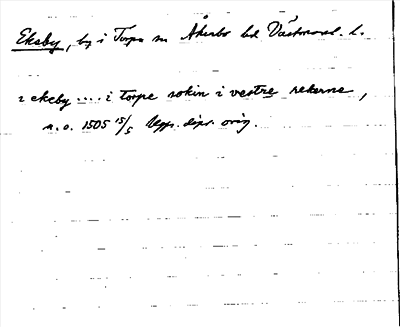 Ekeby, by i Torpa sn Åkerbo hd Västmanl. l.
i ekeby .... i torpe sokin i vestre rekerne,
n.o. 1505 15/5 Upps. dipl. orig.